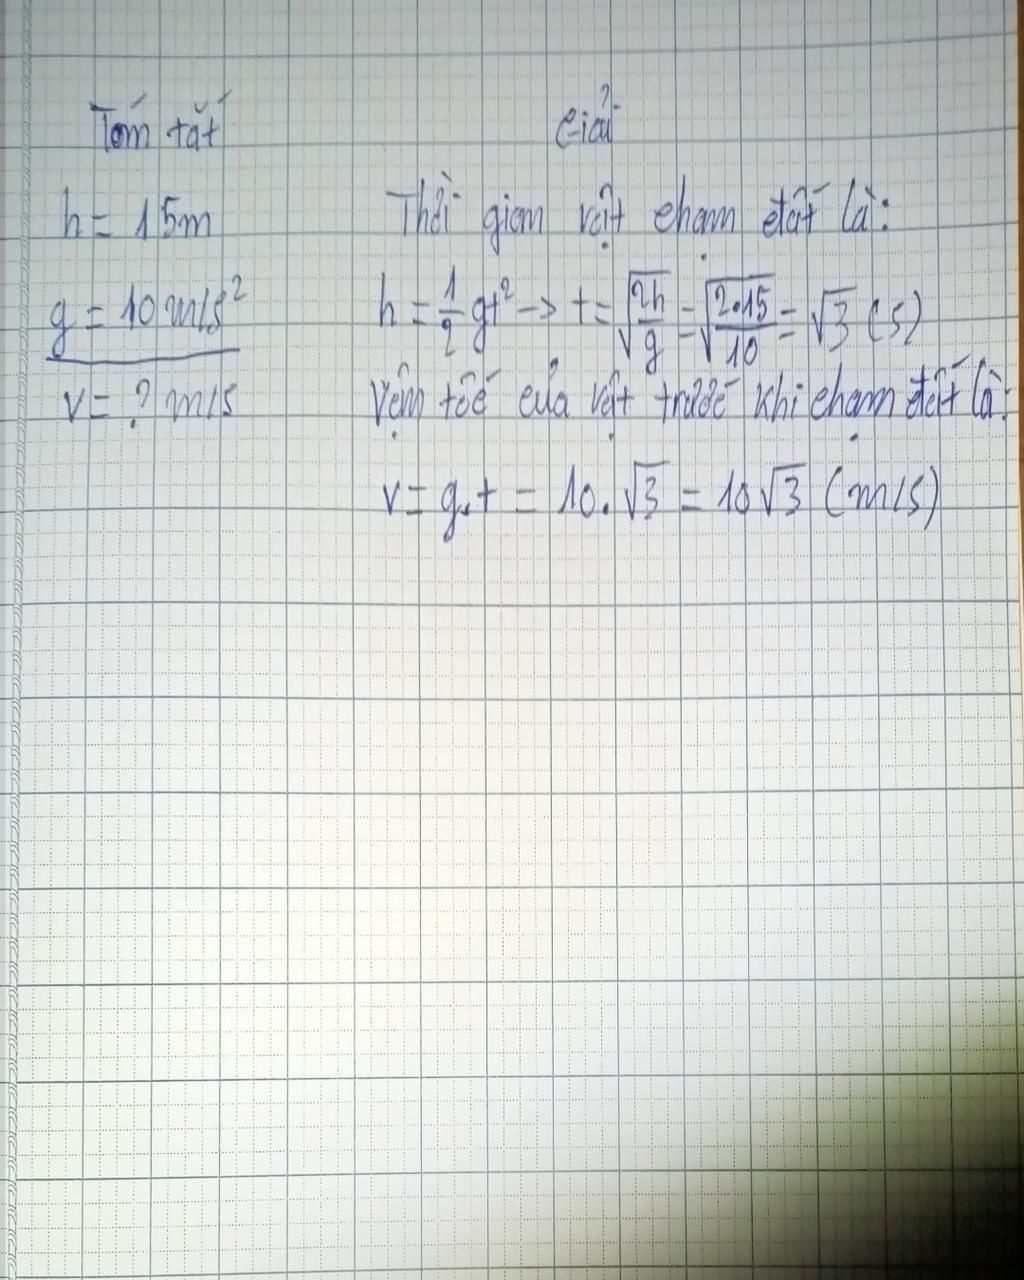 Tóm tắt
h = 15m
g = 10 m/s²
v = ? m/s
Giải
Thời gian vật chạm đất là:
h = 1/2 gt² -> t = √(2h/g) = √(2.15/10) = √3 (s)
Vận tốc của vật trước khi chạm đất là:
v = g.t = 10.√3 = 10√3 (m/s)